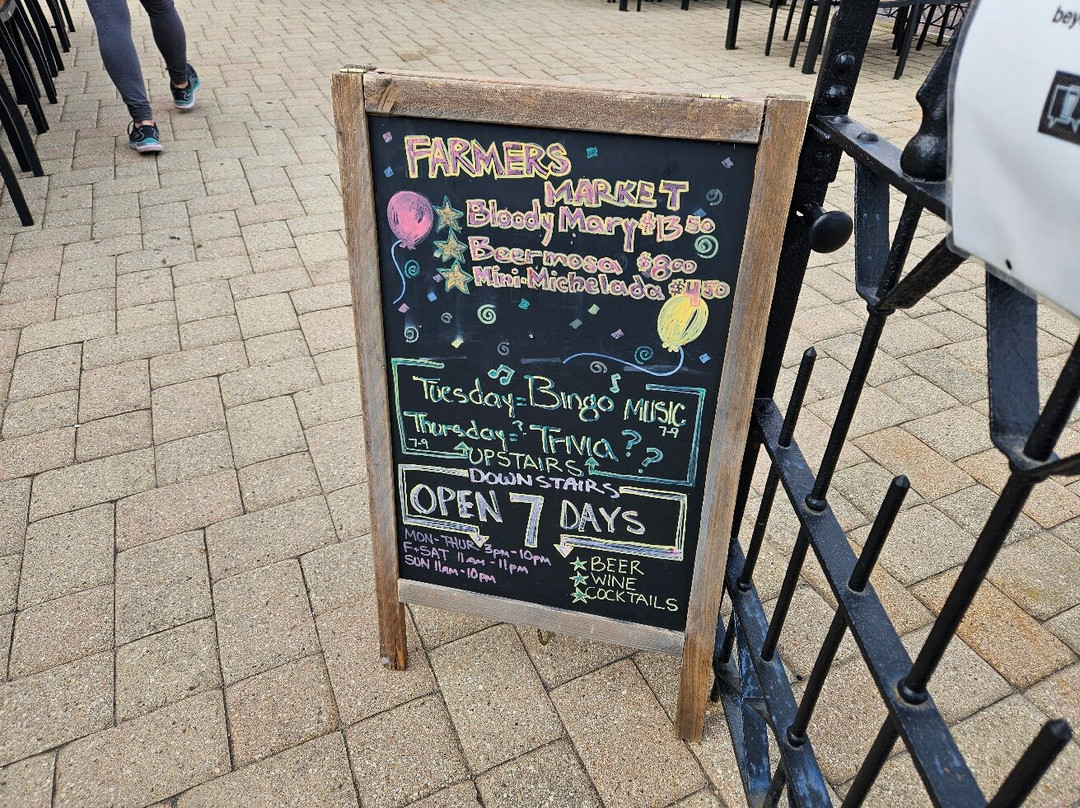 FARMERS
MARKET
Bloody Mary $13 50
Beermosa $8 00
Mini-Michelada $4 50
Tuesday = Bingo MUSIC
7-9
Thursday = ? Trivia ? ?
7-9
UPSTAIRS
DOWNSTAIRS
OPEN 7 DAYS
MON-THUR 3PM-10PM
F+SAT 11AM-11PM
SUN 11AM-10PM
BEER
WINE
COCKTAILS
bey